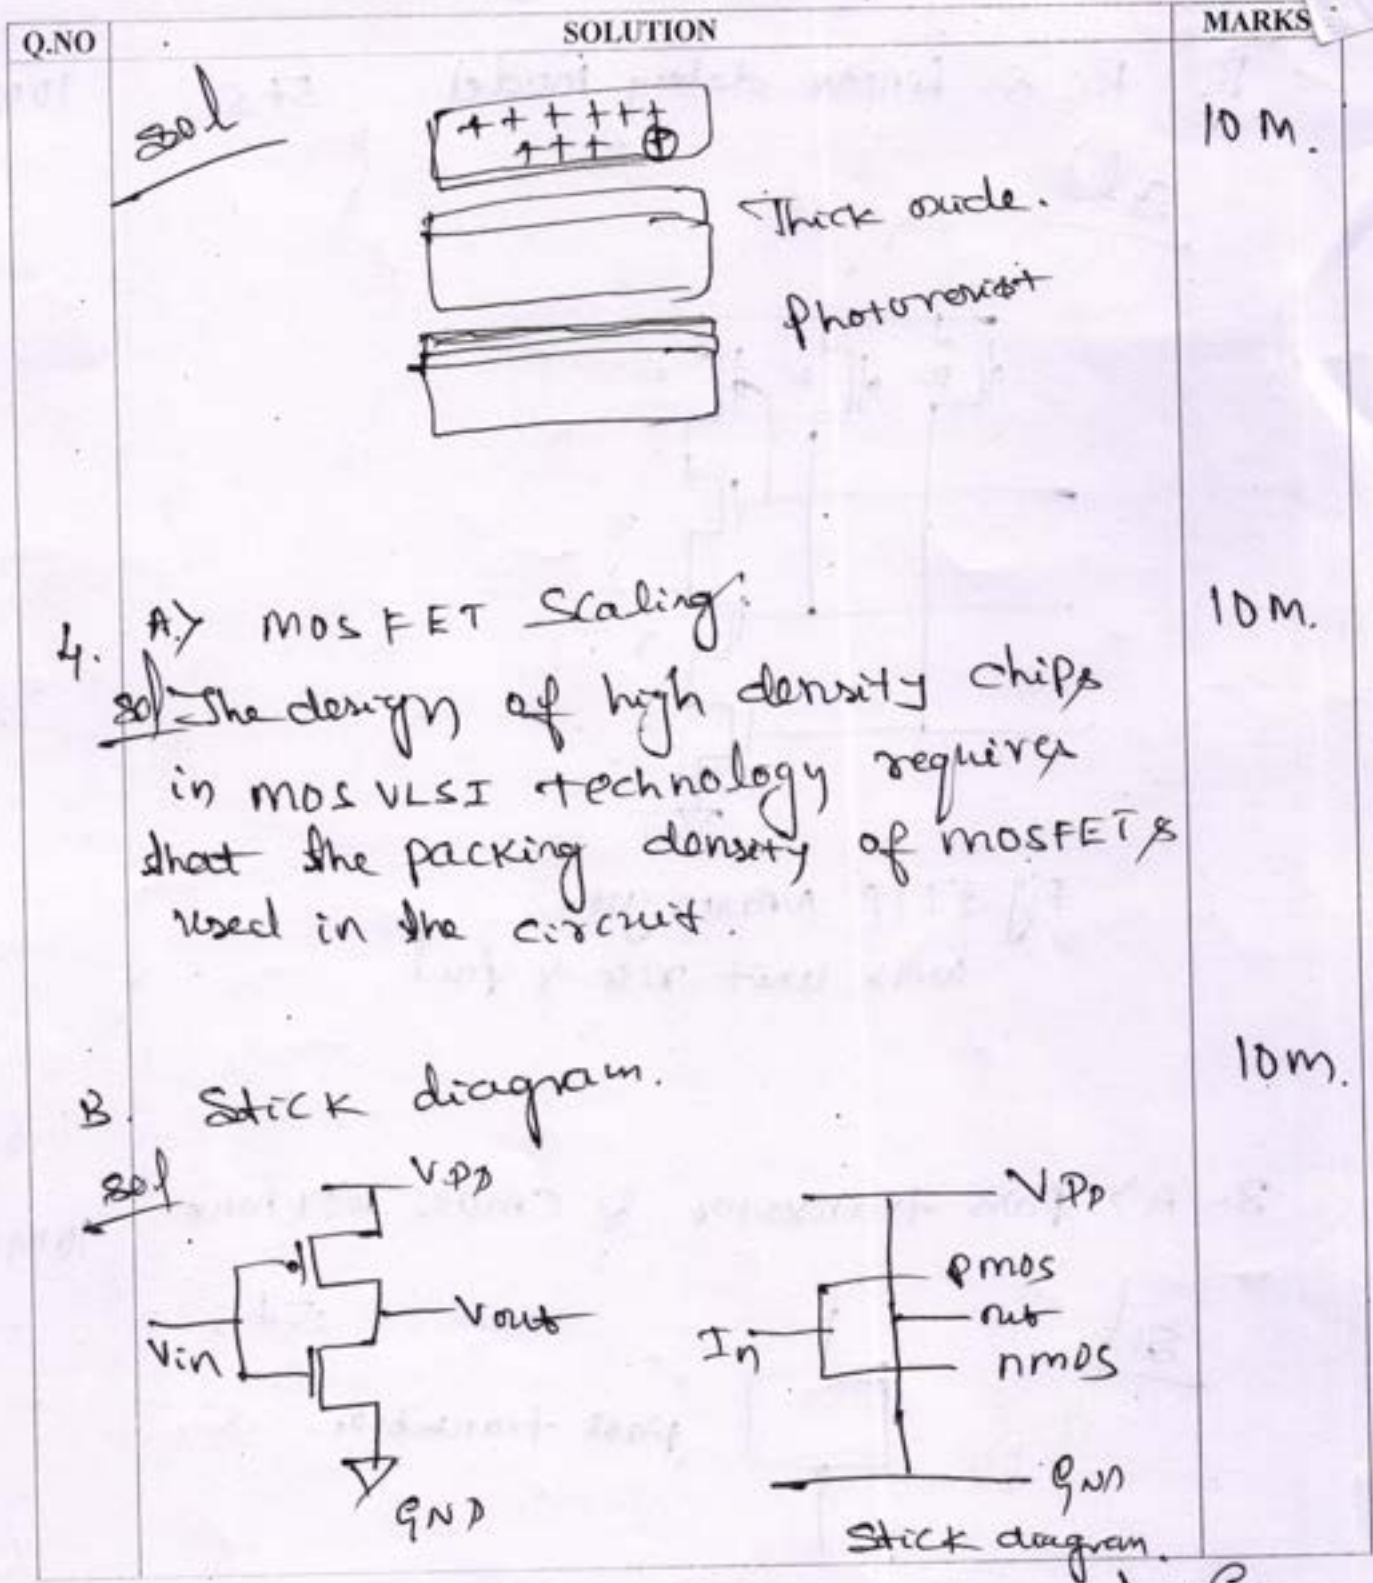 Q.NO SOLUTION MARKS
sol 10 M.
+ + + + + + +
+ + + +
Thick oxide.
Photoresist
4. A.) MOSFET Scaling: 10 M.
sol The design of high density chips
in MOS VLSI technology requires
that the packing density of MOSFETs
used in the circuit.
B. Stick diagram. 10 M.
sol
VDD VDD
pmos
Vout out
Vin In
nmos
GND GND
Stick diagram.